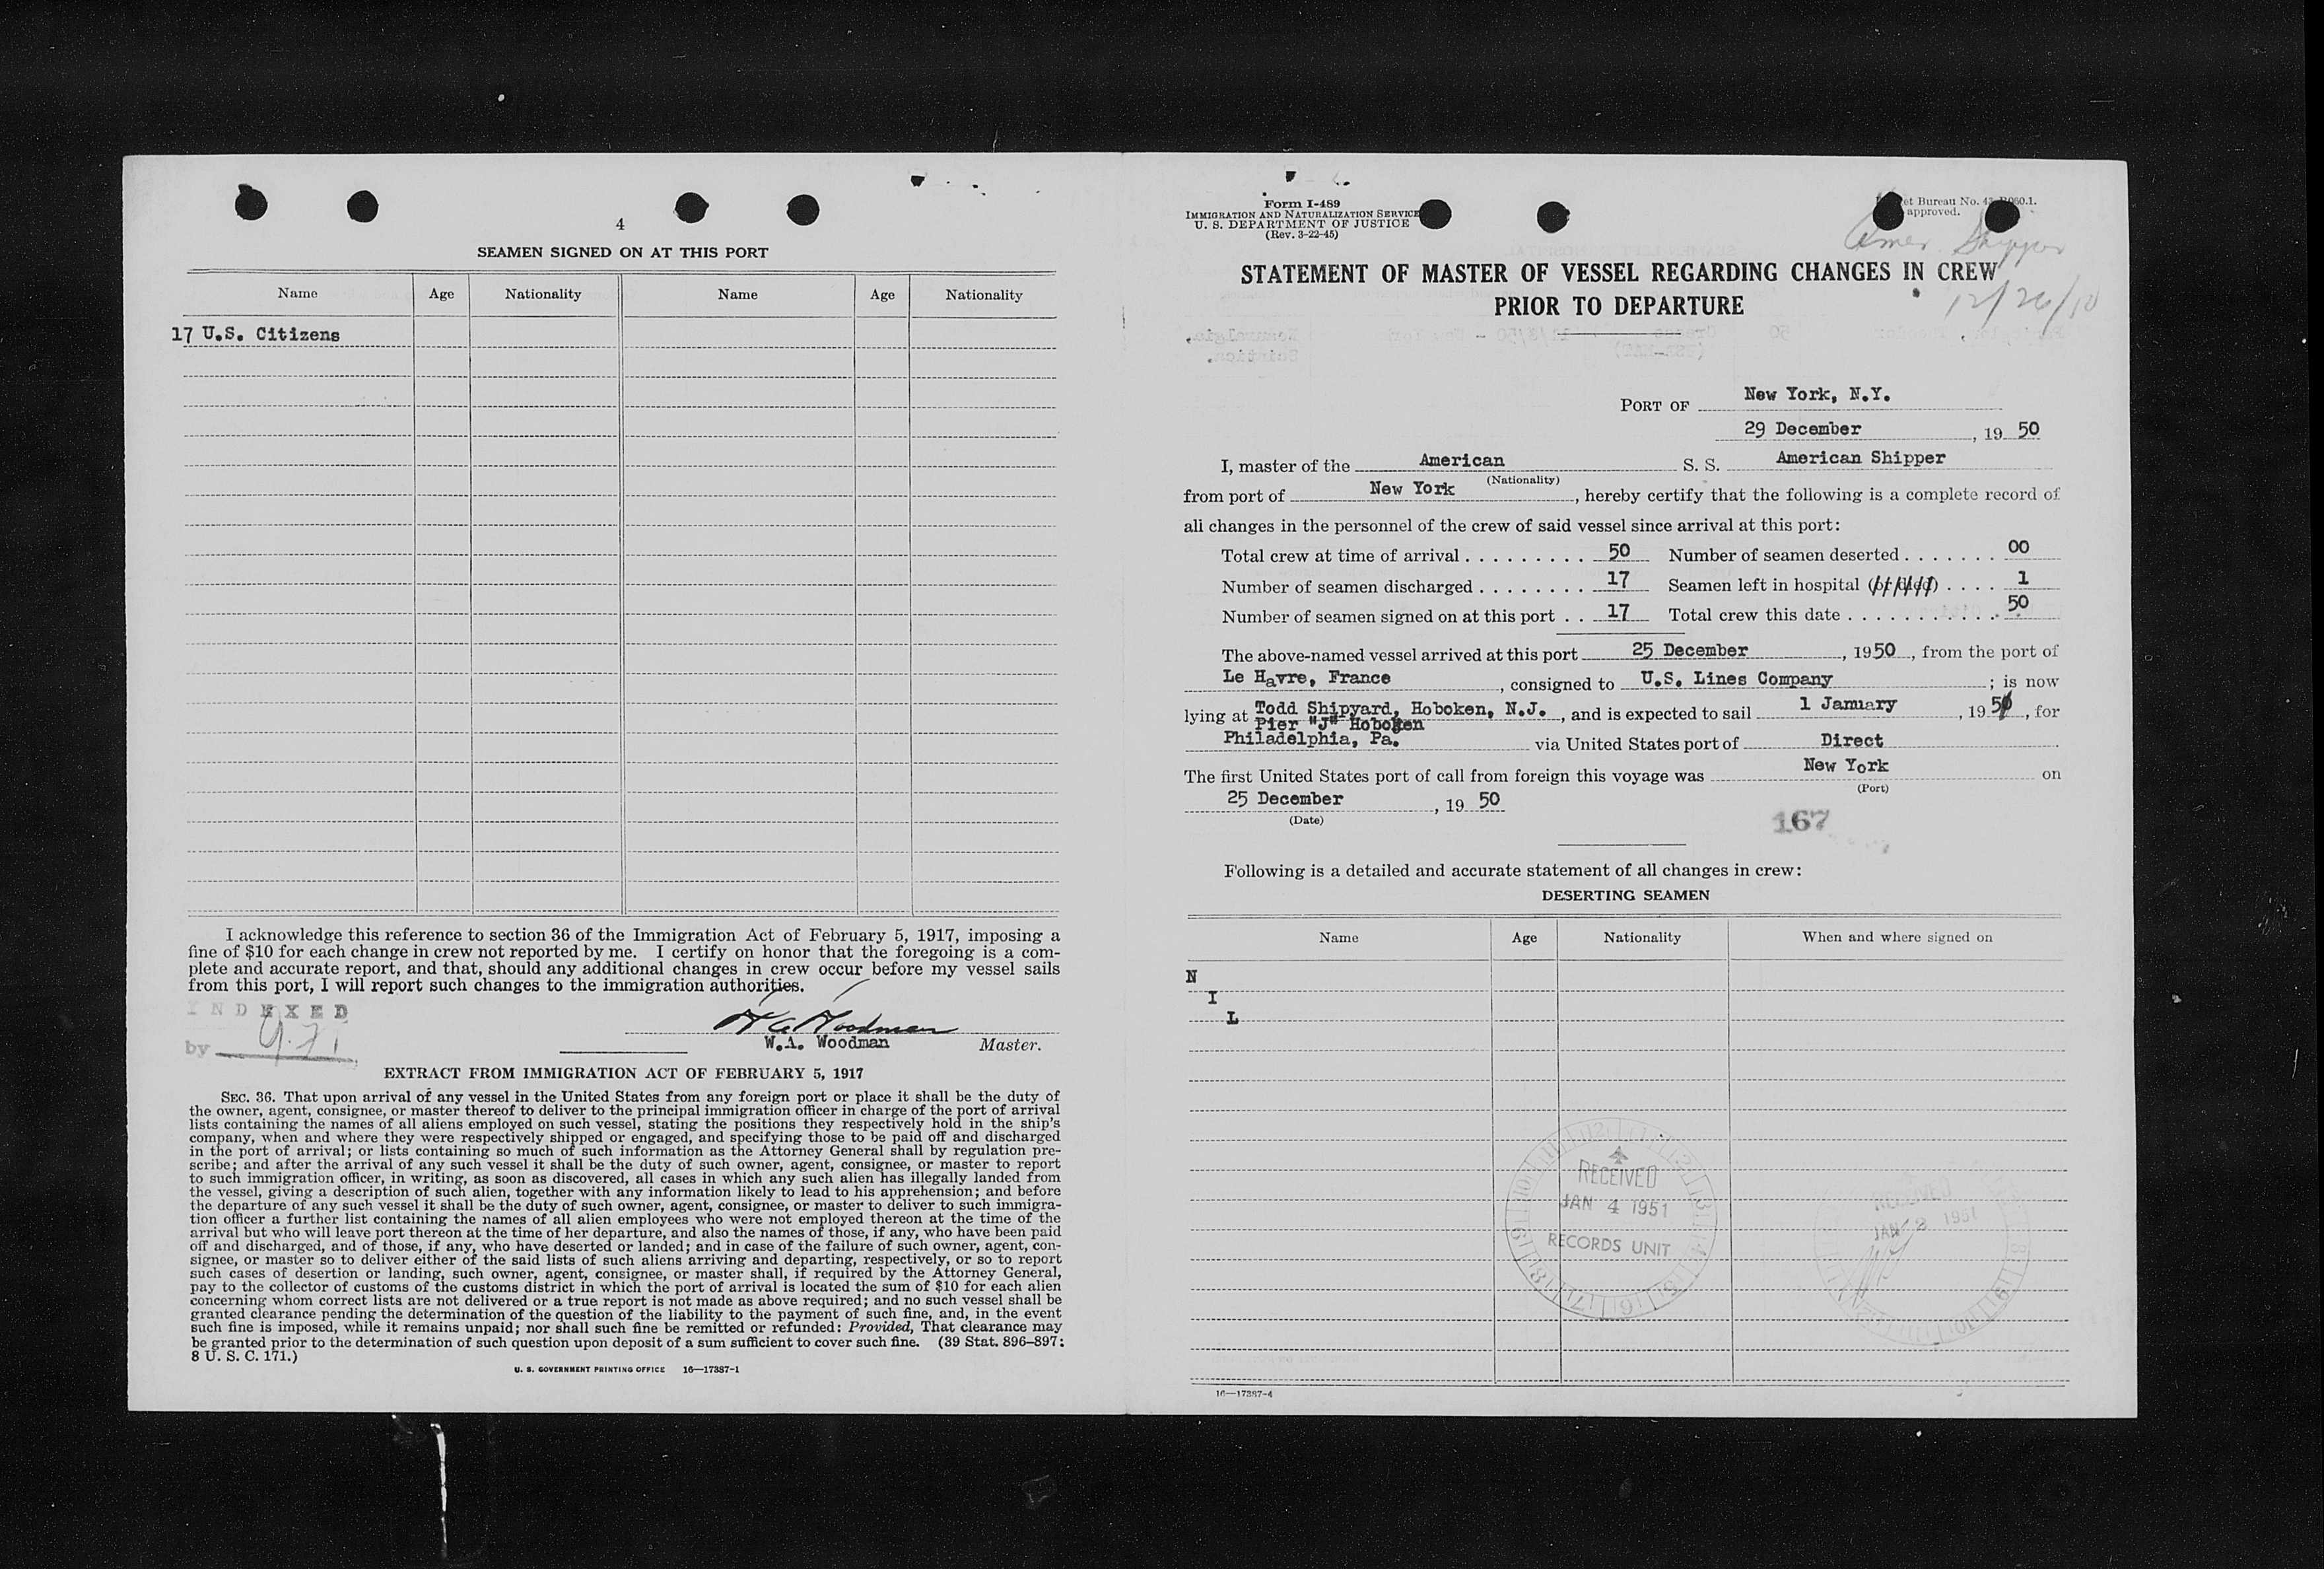 4
SEAMEN SIGNED ON AT THIS PORT
Name Age Nationality Name Age Nationality
17 U.S. Citizens
I acknowledge this reference to section 36 of the Immigration Act of February 5, 1917, imposing a
fine of $10 for each change in crew not reported by me. I certify on honor that the foregoing is a com-
plete and accurate report, and that, should any additional changes in crew occur before my vessel sails
from this port, I will report such changes to the immigration authorities.
INDEXED
by
W A Woodman
W.A. Woodman Master.
EXTRACT FROM IMMIGRATION ACT OF FEBRUARY 5, 1917
SEC. 36. That upon arrival of any vessel in the United States from any foreign port or place it shall be the duty of
the owner, agent, consignee, or master thereof to deliver to the principal immigration officer in charge of the port of arrival
lists containing the names of all aliens employed on such vessel, stating the positions they respectively hold in the ship's
company, when and where they were respectively shipped or engaged, and specifying those to be paid off and discharged
in the port of arrival; or lists containing so much of such information as the Attorney General shall by regulation pre-
scribe; and after the arrival of any such vessel it shall be the duty of such owner, agent, consignee, or master to report
to such immigration officer, in writing, as soon as discovered, all cases in which any such alien has illegally landed from
the vessel, giving a description of such alien, together with any information likely to lead to his apprehension; and before
the departure of any such vessel it shall be the duty of such owner, agent, consignee, or master to deliver to such immigra-
tion officer a further list containing the names of all alien employees who were not employed thereon at the time of the
arrival but who will leave port thereon at the time of her departure, and also the names of those, if any, who have been paid
off and discharged, and of those, if any, who have deserted or landed; and in case of the failure of such owner, agent, con-
signee, or master so to deliver either of the said lists of such aliens arriving and departing, respectively, or so to report
such cases of desertion or landing, such owner, agent, consignee, or master shall, if required by the Attorney General,
pay to the collector of customs of the customs district in which the port of arrival is located the sum of $10 for each alien
concerning whom correct lists are not delivered or a true report is not made as above required; and no such vessel shall be
granted clearance pending the determination of the question of the liability to the payment of such fine, and, in the event
such fine is imposed, while it remains unpaid; nor shall such fine be remitted or refunded: Provided, That clearance may
be granted prior to the determination of such question upon deposit of a sum sufficient to cover such fine. (39 Stat. 896-897;
8 U. S. C. 171.)
U. S. GOVERNMENT PRINTING OFFICE 16—17387-1
Form I-489
IMMIGRATION AND NATURALIZATION SERVICE
U. S. DEPARTMENT OF JUSTICE
(Rev. 3-22-45)
et Bureau No. 43 R060.1.
approved.
Amer. Shipper
STATEMENT OF MASTER OF VESSEL REGARDING CHANGES IN CREW
PRIOR TO DEPARTURE
PORT OF New York, N.Y.
29 December, 19 50
I, master of the American S. S. American Shipper
(Nationality)
from port of New York, hereby certify that the following is a complete record of
all changes in the personnel of the crew of said vessel since arrival at this port:
Total crew at time of arrival . . . . . . . . . 50 Number of seamen deserted . . . . . . . 00
Number of seamen discharged . . . . . . . . 17 Seamen left in hospital (or died) . . . . 1
Number of seamen signed on at this port . . 17 Total crew this date . . . . . . . . . . . . 50
The above-named vessel arrived at this port 25 December, 1950, from the port of
Le Havre, France, consigned to U.S. Lines Company; is now
lying at Todd Shipyard, Hoboken, N.J., and is expected to sail 1 January, 1951, for
Pier "J" Hoboken
Philadelphia, Pa. via United States port of Direct.
The first United States port of call from foreign this voyage was New York on
(Port)
25 December, 19 50
(Date)
167
Following is a detailed and accurate statement of all changes in crew:
DESERTING SEAMEN
Name Age Nationality When and where signed on
N
I
L
RECEIVED
JAN 4 1951
RECORDS UNIT
RECEIVED
JAN 3 1951
16—17387-4